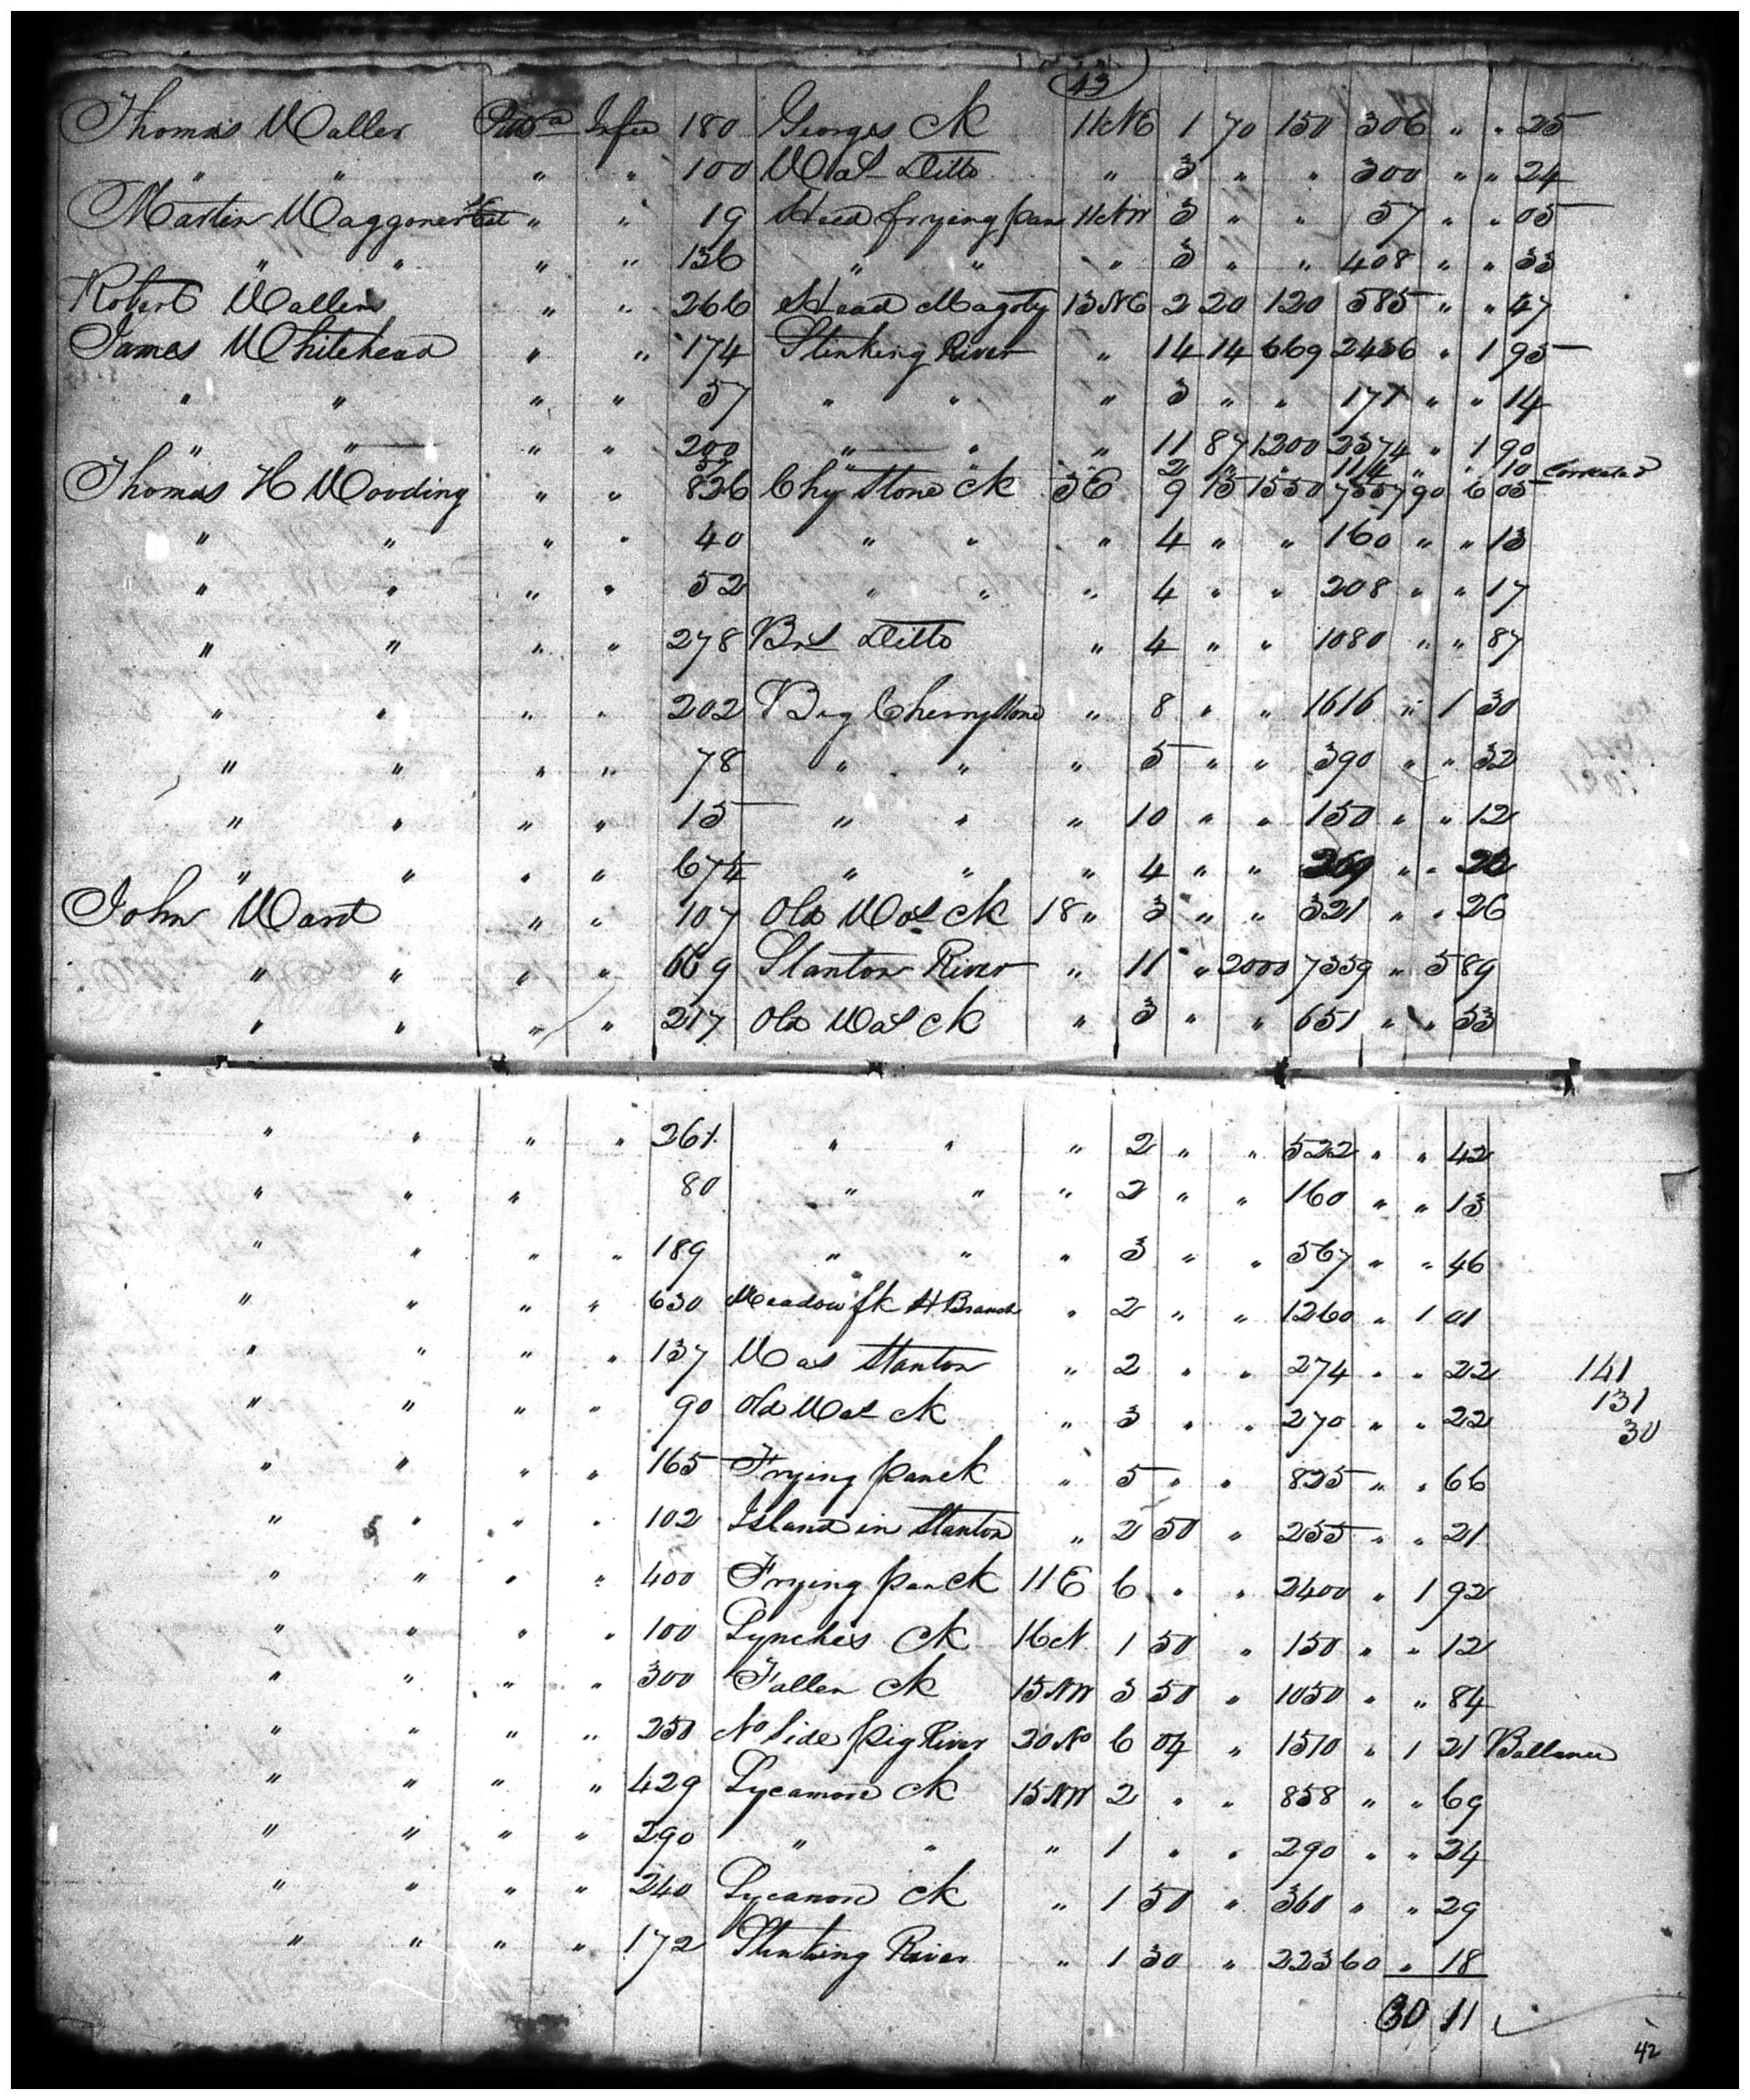 43
Thomas Waller Pittsa In fee 180 Georges Ck 11 NE 1 70 150 306 " " 25
" " " " 100 Wat Ditto " 3 " " 300 " " 24
Martin Waggoner Est " " 19 Head frying pan 11 NW 3 " " 57 " " 05
" " " " 136 " " " 3 " " 408 " " 33
Robert Wallers " " 266 Head Magoty 13 NE 2 20 120 585 " " 47
James Whitehead " " 174 Stinking River " 14 14 669 2436 " 1 95
" " " " 57 " " " 3 " " 171 " " 14
" " " " 200 " " " 11 87 1200 2374 " 1 90
57 " " " 2 " " 114 " " 10 Corrected
Thomas H Wooding " " 836 Chy Stone Ck 3 E 9 15 1550 7557 90 6 05
" " " " 40 " " " 4 " " 160 " " 13
" " " " 52 " " " 4 " " 208 " " 17
" " " " 278 Brs Ditto " 4 " " 1080 " " 87
" " " " 202 Big Cherrystone " 8 " " 1616 " 1 30
" " " " 78 " " " 5 " " 390 " " 32
" " " " 15 " " " 10 " " 150 " " 12
" " " " 67 4 " " " 4 " " 269 " " 22
John Ward " " 107 Old Wos Ck 18 " 3 " " 321 " " 26
" " " " 669 Stanton River " 11 " 2000 7359 " 5 89
" " " " 217 Old Wat Ck " 3 " " 651 " " 53
" " " " 261 " " " 2 " " 522 " " 42
" " " 80 " " " 2 " " 160 " " 13
" " " " 189 " " " 3 " " 567 " " 46
" " " " 630 Meadow fk H Branch " 2 " " 1260 " 1 01
" " " " 137 Was Stanton " 2 " " 274 " " 22 141
" " " " 90 Old Wat Ck " 3 " " 270 " " 22 131
30
" " " " 165 Frying pan Ck " 5 " " 825 " " 66
" " " " 102 Island in Stanton " 2 50 " 255 " " 21
" " " " 400 Frying pan Ck 11 E 6 " " 2400 " 1 92
" " " " 100 Lynches Ck 16 N 1 50 " 150 " " 12
" " " " 300 Fallen Ck 15 NW 3 50 " 1050 " " 84
" " " " 250 No Side pig River 20 No 6 04 " 1510 " 1 21 Ballance
" " " " 429 Sycamore Ck 15 NW 2 " " 858 " " 69
" " " " 290 " " " 1 " " 290 " " 24
" " " " 240 Sycamore Ck " 1 50 " 360 " " 29
" " " " 172 Stinking River " 1 30 " 223 60 " 18
30 11
42